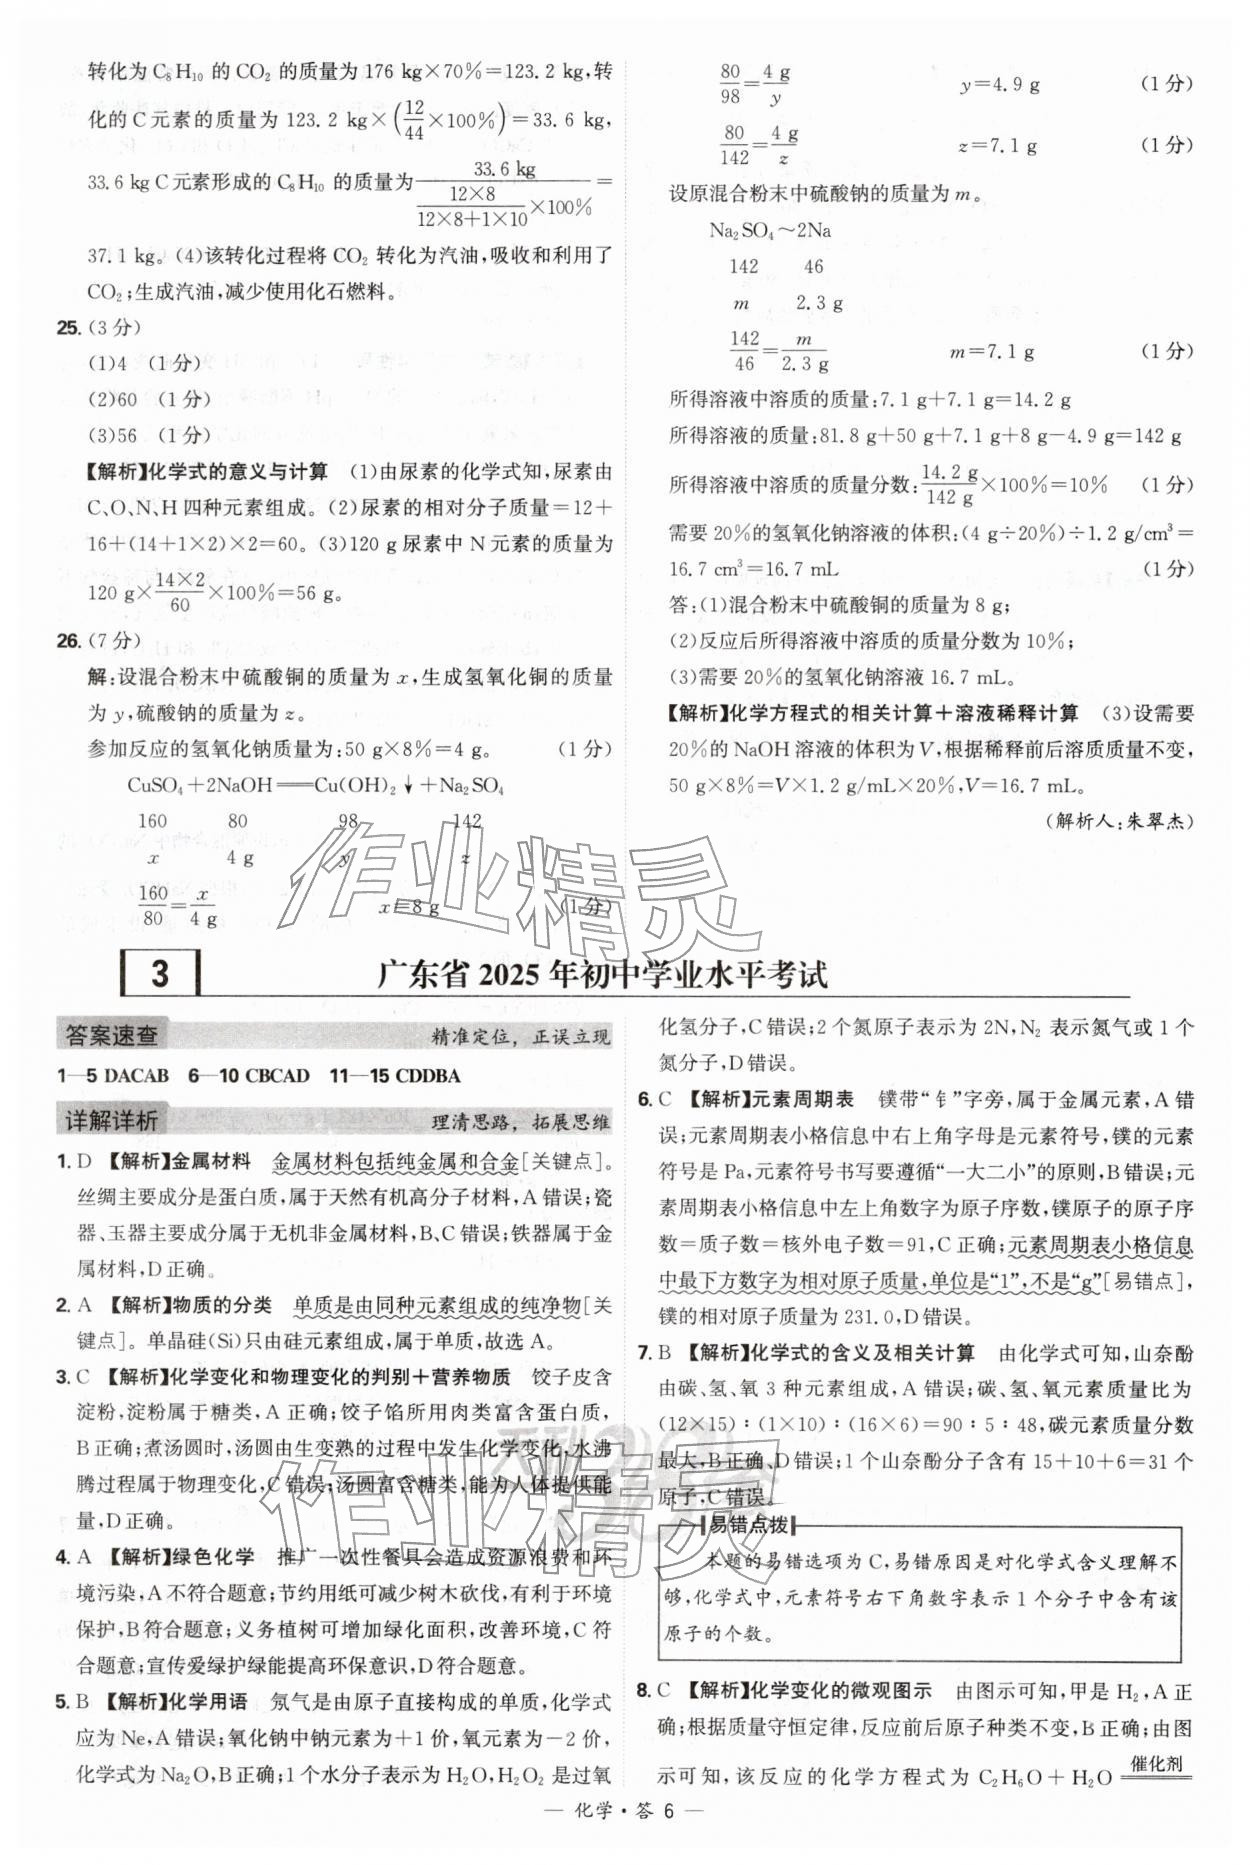 转化为C₈H₁₀ 的 CO₂ 的质量为 176 kg×70%=123.2 kg,转
化的 C 元素的质量为 123.2 kg×(12/44×100%)=33.6 kg,
33.6 kg C 元素形成的 C₈H₁₀ 的质量为 33.6 kg/(12×8/(12×8+1×10)×100%)=
37.1 kg。(4)该转化过程将 CO₂ 转化为汽油,吸收和利用了
CO₂;生成汽油,减少使用化石燃料。
25.(3 分)
(1)4 (1 分)
(2)60 (1 分)
(3)56 (1 分)
【解析】化学式的意义与计算 (1)由尿素的化学式知,尿素由
C、O、N、H 四种元素组成。(2)尿素的相对分子质量=12+
16+(14+1×2)×2=60。(3)120 g 尿素中 N 元素的质量为
120 g×14×2/60×100%=56 g。
26.(7 分)
解:设混合粉末中硫酸铜的质量为 x,生成氢氧化铜的质量
为 y,硫酸钠的质量为 z。
参加反应的氢氧化钠质量为:50 g×8%=4 g。 (1 分)
CuSO₄+2NaOH══Cu(OH)₂↓+Na₂SO₄
160 80 98 142
x 4 g y z
160/80=x/4 g x=8 g (1 分)
80/98=4 g/y y=4.9 g (1 分)
80/142=4 g/z z=7.1 g (1 分)
设原混合粉末中硫酸钠的质量为 m。
Na₂SO₄~2Na
142 46
m 2.3 g
142/46=m/2.3 g m=7.1 g (1 分)
所得溶液中溶质的质量:7.1 g+7.1 g=14.2 g
所得溶液的质量:81.8 g+50 g+7.1 g+8 g-4.9 g=142 g
所得溶液中溶质的质量分数:14.2 g/142 g×100%=10% (1 分)
需要 20%的氢氧化钠溶液的体积:(4 g÷20%)÷1.2 g/cm³=
16.7 cm³=16.7 mL (1 分)
答:(1)混合粉末中硫酸铜的质量为 8 g;
(2)反应后所得溶液中溶质的质量分数为 10%;
(3)需要 20%的氢氧化钠溶液 16.7 mL。
【解析】化学方程式的相关计算+溶液稀释计算 (3)设需要
20%的 NaOH 溶液的体积为 V,根据稀释前后溶质质量不变,
50 g×8%=V×1.2 g/mL×20%,V=16.7 mL。
(解析人:朱翠杰)
3 广东省 2025 年初中学业水平考试
答案速查 精准定位,正误立现
1—5 DACAB 6—10 CBCAD 11—15 CDDBA
详解详析 理清思路,拓展思维
1. D 【解析】金属材料 金属材料包括纯金属和合金[关键点]。
丝绸主要成分是蛋白质,属于天然有机高分子材料,A 错误;瓷
器、玉器主要成分属于无机非金属材料,B、C 错误;铁器属于金
属材料,D 正确。
2. A 【解析】物质的分类 单质是由同种元素组成的纯净物[关
键点]。单晶硅(Si)只由硅元素组成,属于单质,故选 A。
3. C 【解析】化学变化和物理变化的判别+营养物质 饺子皮含
淀粉,淀粉属于糖类,A 正确;饺子馅所用肉类富含蛋白质,
B 正确;煮汤圆时,汤圆由生变熟的过程中发生化学变化,水沸
腾过程属于物理变化,C 错误;汤圆富含糖类,能为人体提供能
量,D 正确。
4. A 【解析】绿色化学 推广一次性餐具会造成资源浪费和环
境污染,A 不符合题意;节约用纸可减少树木砍伐,有利于环境
保护,B 符合题意;义务植树可增加绿化面积,改善环境,C 符
合题意;宣传爱绿护绿能提高环保意识,D 符合题意。
5. B 【解析】化学用语 氖气是由原子直接构成的单质,化学式
应为 Ne,A 错误;氧化钠中钠元素为+1 价,氧元素为-2 价,
化学式为 Na₂O,B 正确;1 个水分子表示为 H₂O,H₂O₂ 是过氧
化氢分子,C 错误;2 个氮原子表示为 2N,N₂ 表示氮气或 1 个
氮分子,D 错误。
6. C 【解析】元素周期表 镤带“钅”字旁,属于金属元素,A 错
误;元素周期表小格信息中右上角字母是元素符号,镤的元素
符号是 Pa,元素符号书写要遵循“一大二小”的原则,B 错误;元
素周期表小格信息中左上角数字为原子序数,镤原子的原子序
数=质子数=核外电子数=91,C 正确;元素周期表小格信息
中最下方数字为相对原子质量,单位是“1”,不是“g”[易错点],
镤的相对原子质量为 231.0,D 错误。
7. B 【解析】化学式的含义及相关计算 由化学式可知,山奈酚
由碳、氢、氧 3 种元素组成,A 错误;碳、氢、氧元素质量比为
(12×15):(1×10):(16×6)=90:5:48,碳元素质量分数
最大,B 正确、D 错误;1 个山奈酚分子含有 15+10+6=31 个
原子,C 错误。
易错点拨
本题的易错选项为 C,易错原因是对化学式含义理解不
够,化学式中,元素符号右下角数字表示 1 个分子中含有该
原子的个数。
8. C 【解析】化学变化的微观图示 由图示可知,甲是 H₂,A 正
确;根据质量守恒定律,反应前后原子种类不变,B 正确;由图
示可知,该反应的化学方程式为 C₂H₆O+H₂O 催化剂══
— 化学·答 6 —
作业精灵
作业精灵